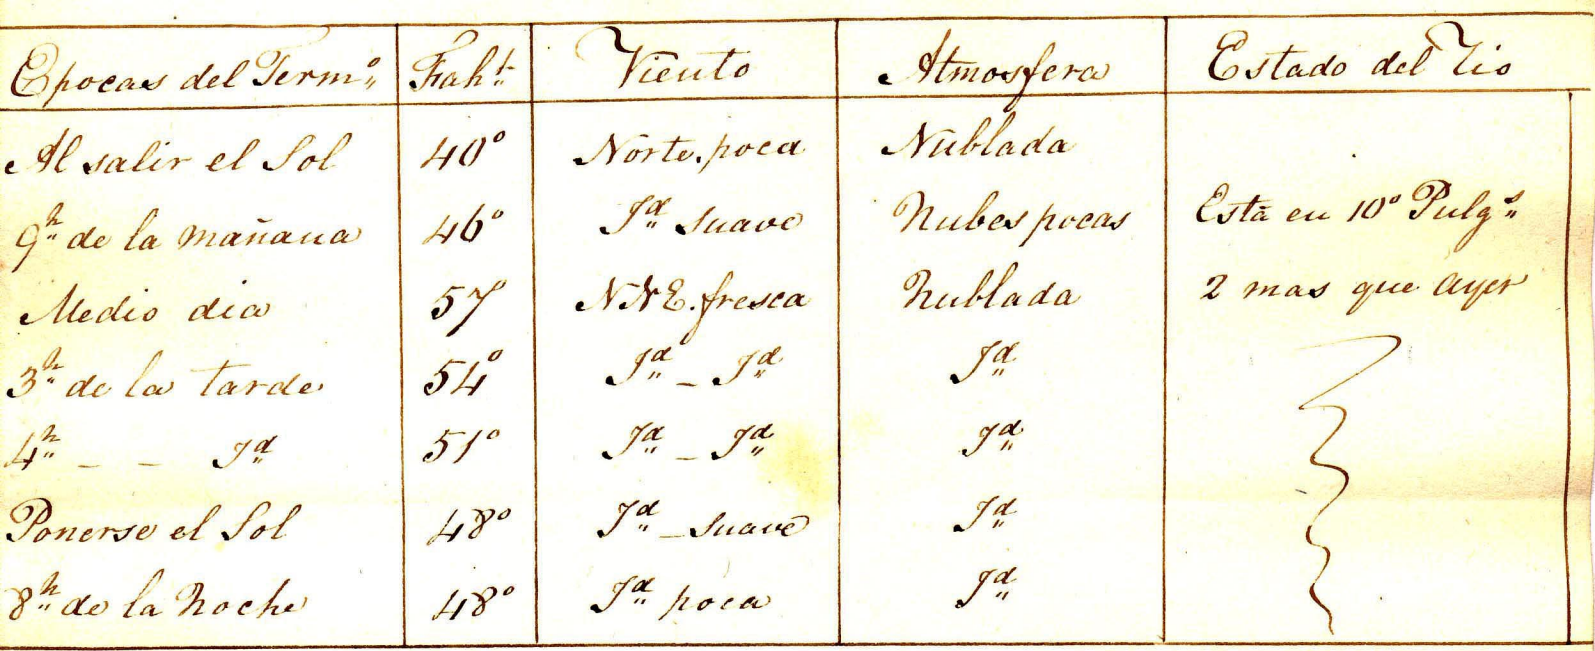 Epocas del Term.º Fah.t Viento Atmosfera Estado del Rio
Al salir el Sol 40º Norte. poca Nublada
9.h de la mañana 46º Id. suave Nubes pocas Está en 10º Pulg.s
Medio dia 57º NNE. fresca Nublada 2 mas que ayer
3.h de la tarde 54º Id. – Id. Id.
4.h – – Id. 51º Id. – Id. Id.
Ponerse el Sol 48º Id. – suave Id.
8.h de la Noche 48º Id. poca Id.